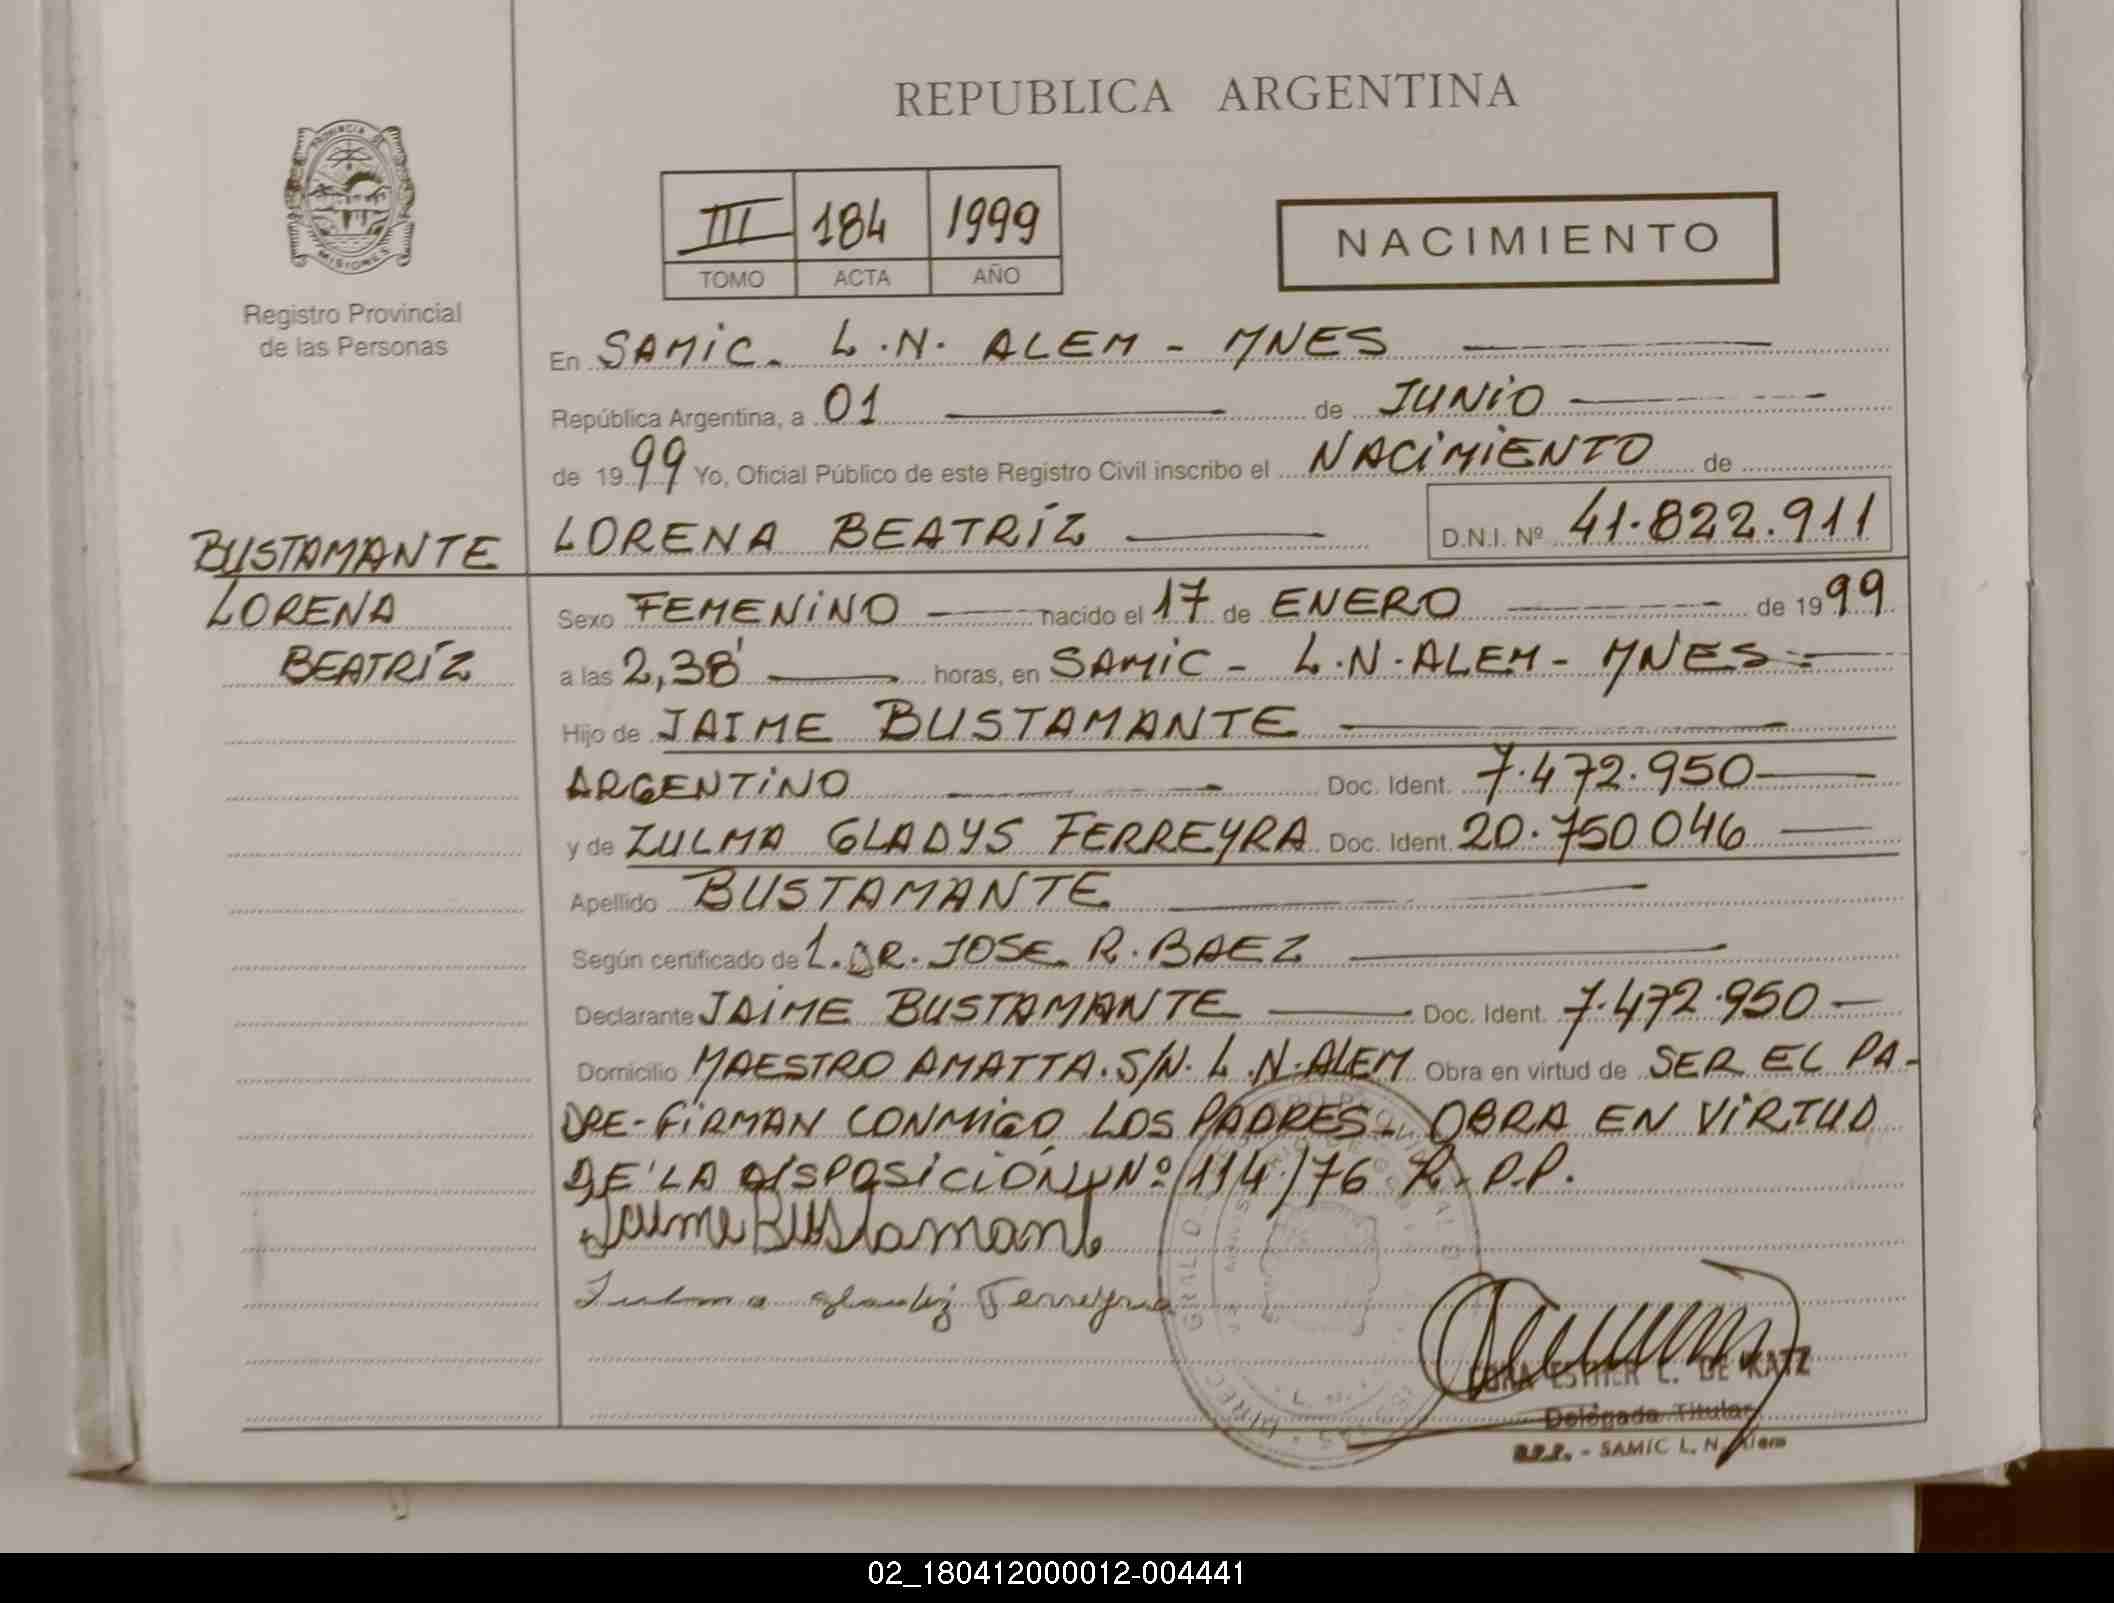 REPUBLICA ARGENTINA
PROVINCIA DE
MISIONES
Registro Provincial
de las Personas
III 184 1999
TOMO ACTA AÑO
NACIMIENTO
En SAMIC. L.N. ALEM - MNES
República Argentina, a 01 de JUNIO
de 1999 Yo, Oficial Público de este Registro Civil inscribo el NACIMIENTO de
LORENA BEATRÍZ D.N.I. Nº 41.822.911
BUSTAMANTE
LORENA
BEATRÍZ
Sexo FEMENINO nacido el 17 de ENERO de 1999
a las 2,38' horas, en SAMIC - L.N. ALEM - MNES
Hijo de JAIME BUSTAMANTE
ARGENTINO Doc. Ident. 7.472.950
y de ZULMA GLADYS FERREYRA Doc. Ident. 20.750.046
Apellido BUSTAMANTE
Según certificado de L. DR. JOSE R. BAEZ
Declarante JAIME BUSTAMANTE Doc. Ident. 7.472.950
Domicilio MAESTRO AMATTA. S/N. L.N. ALEM Obra en virtud de SER EL PA-
DRE-FIRMAN CONMIGO LOS PADRES. OBRA EN VIRTUD
DE LA DISPOSICIÓN Nº 114/76 R.P.P.
Jaime Bustamante
Ferreyra
ESTHER C. DE KATZ
Delegada Titular
R.P.P. - SAMIC L. N. Alem
02_180412000012-004441